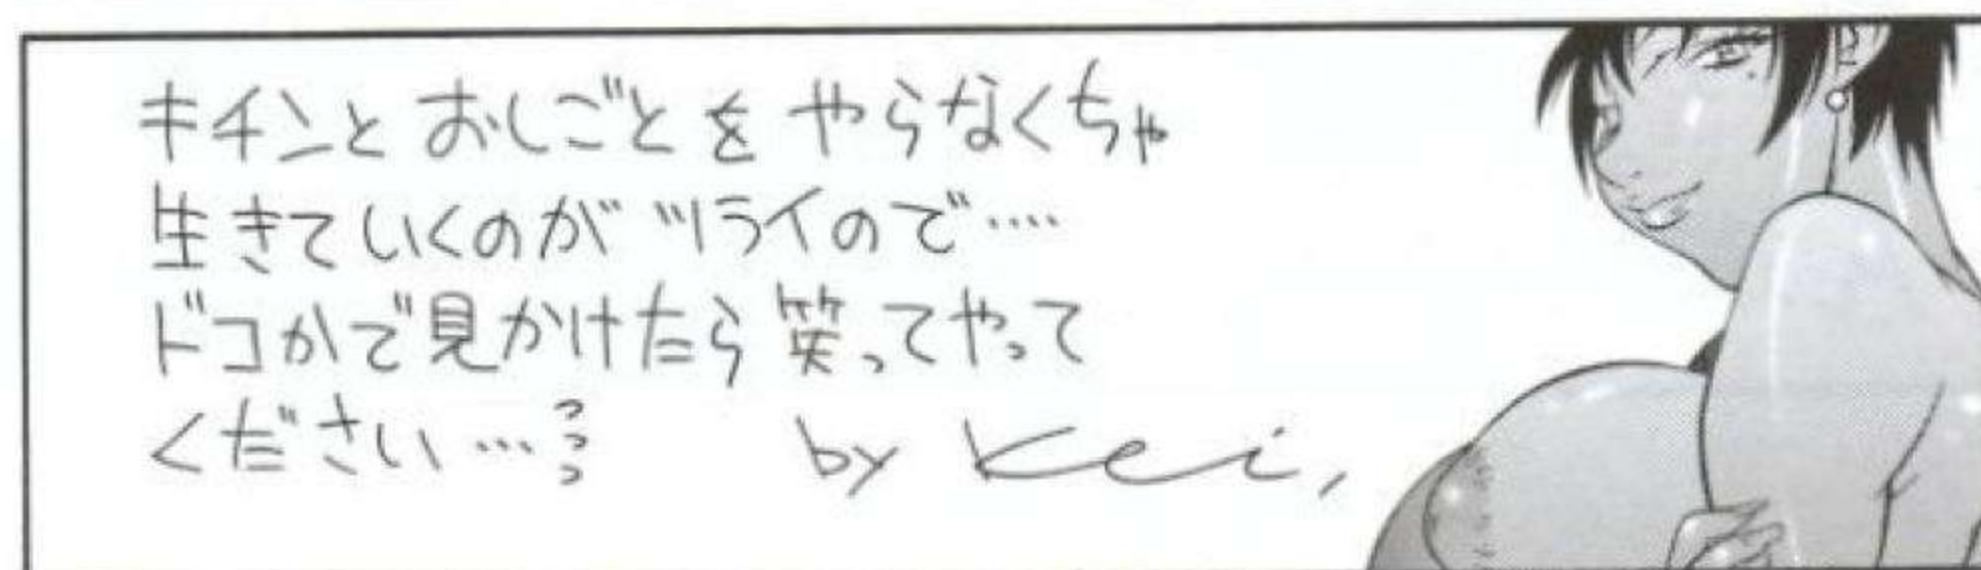 キチンとおしごとをやらなくちゃ
生きていくのがツライので‥‥
ドコかで見かけたら笑ってやって
ください…ううっ
by Kei,